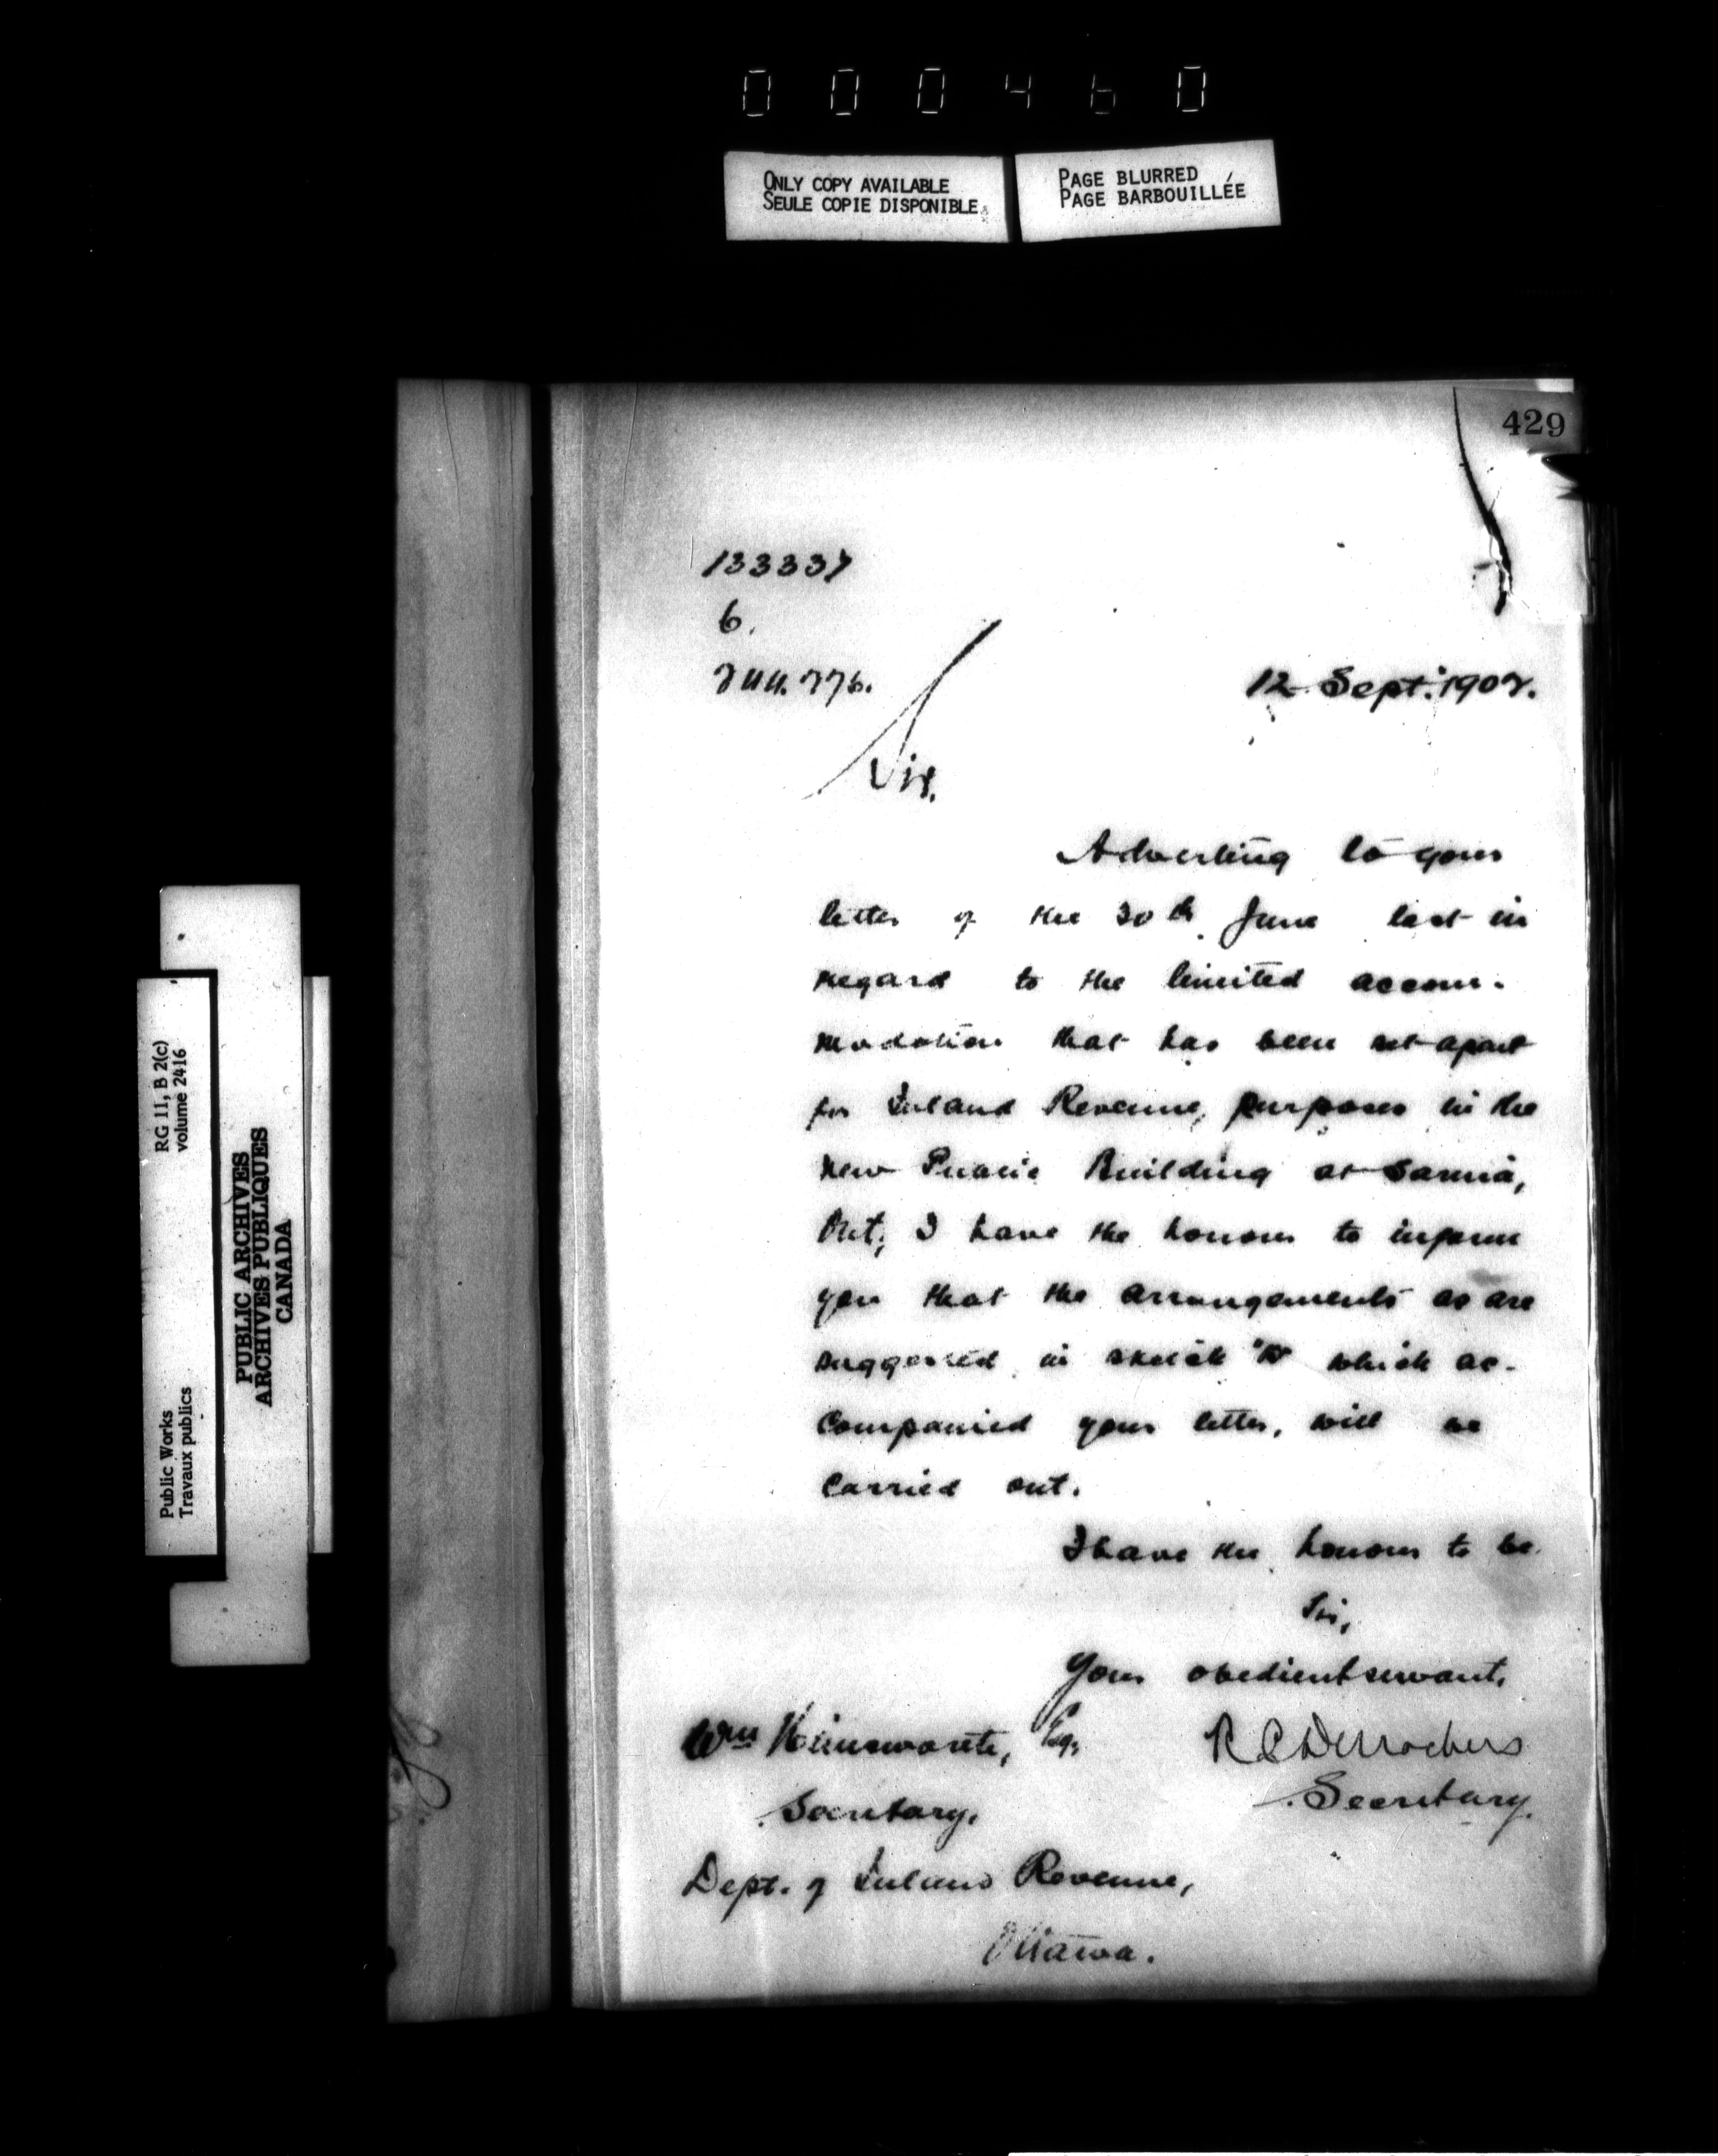 000460
ONLY COPY AVAILABLE
SEULE COPIE DISPONIBLE
PAGE BLURRED
PAGE BARBOUILLÉE
429
133337
6.
12 Sept. 1902.
Sir,
Adverting to your
letter of the 30th June last in
regard to the limited accom-
modation that has been set apart
for Inland Revenue, purposes in the
new Public Building at Sarnia,
Ont., I have the honour to inform
you that the arrangements as are
suggested in sketch which ac-
companied your letter, will be
carried out.
I have the honour to be
Sir,
Your obedient servant,
Wm Himsworth, Esq.
R C Desrochers
Secretary,
Secretary.
Dept. of Inland Revenue,
Ottawa.
Public Works
Travaux publics
RG 11, B 2(c)
volume 2416
PUBLIC ARCHIVES
ARCHIVES PUBLIQUES
CANADA